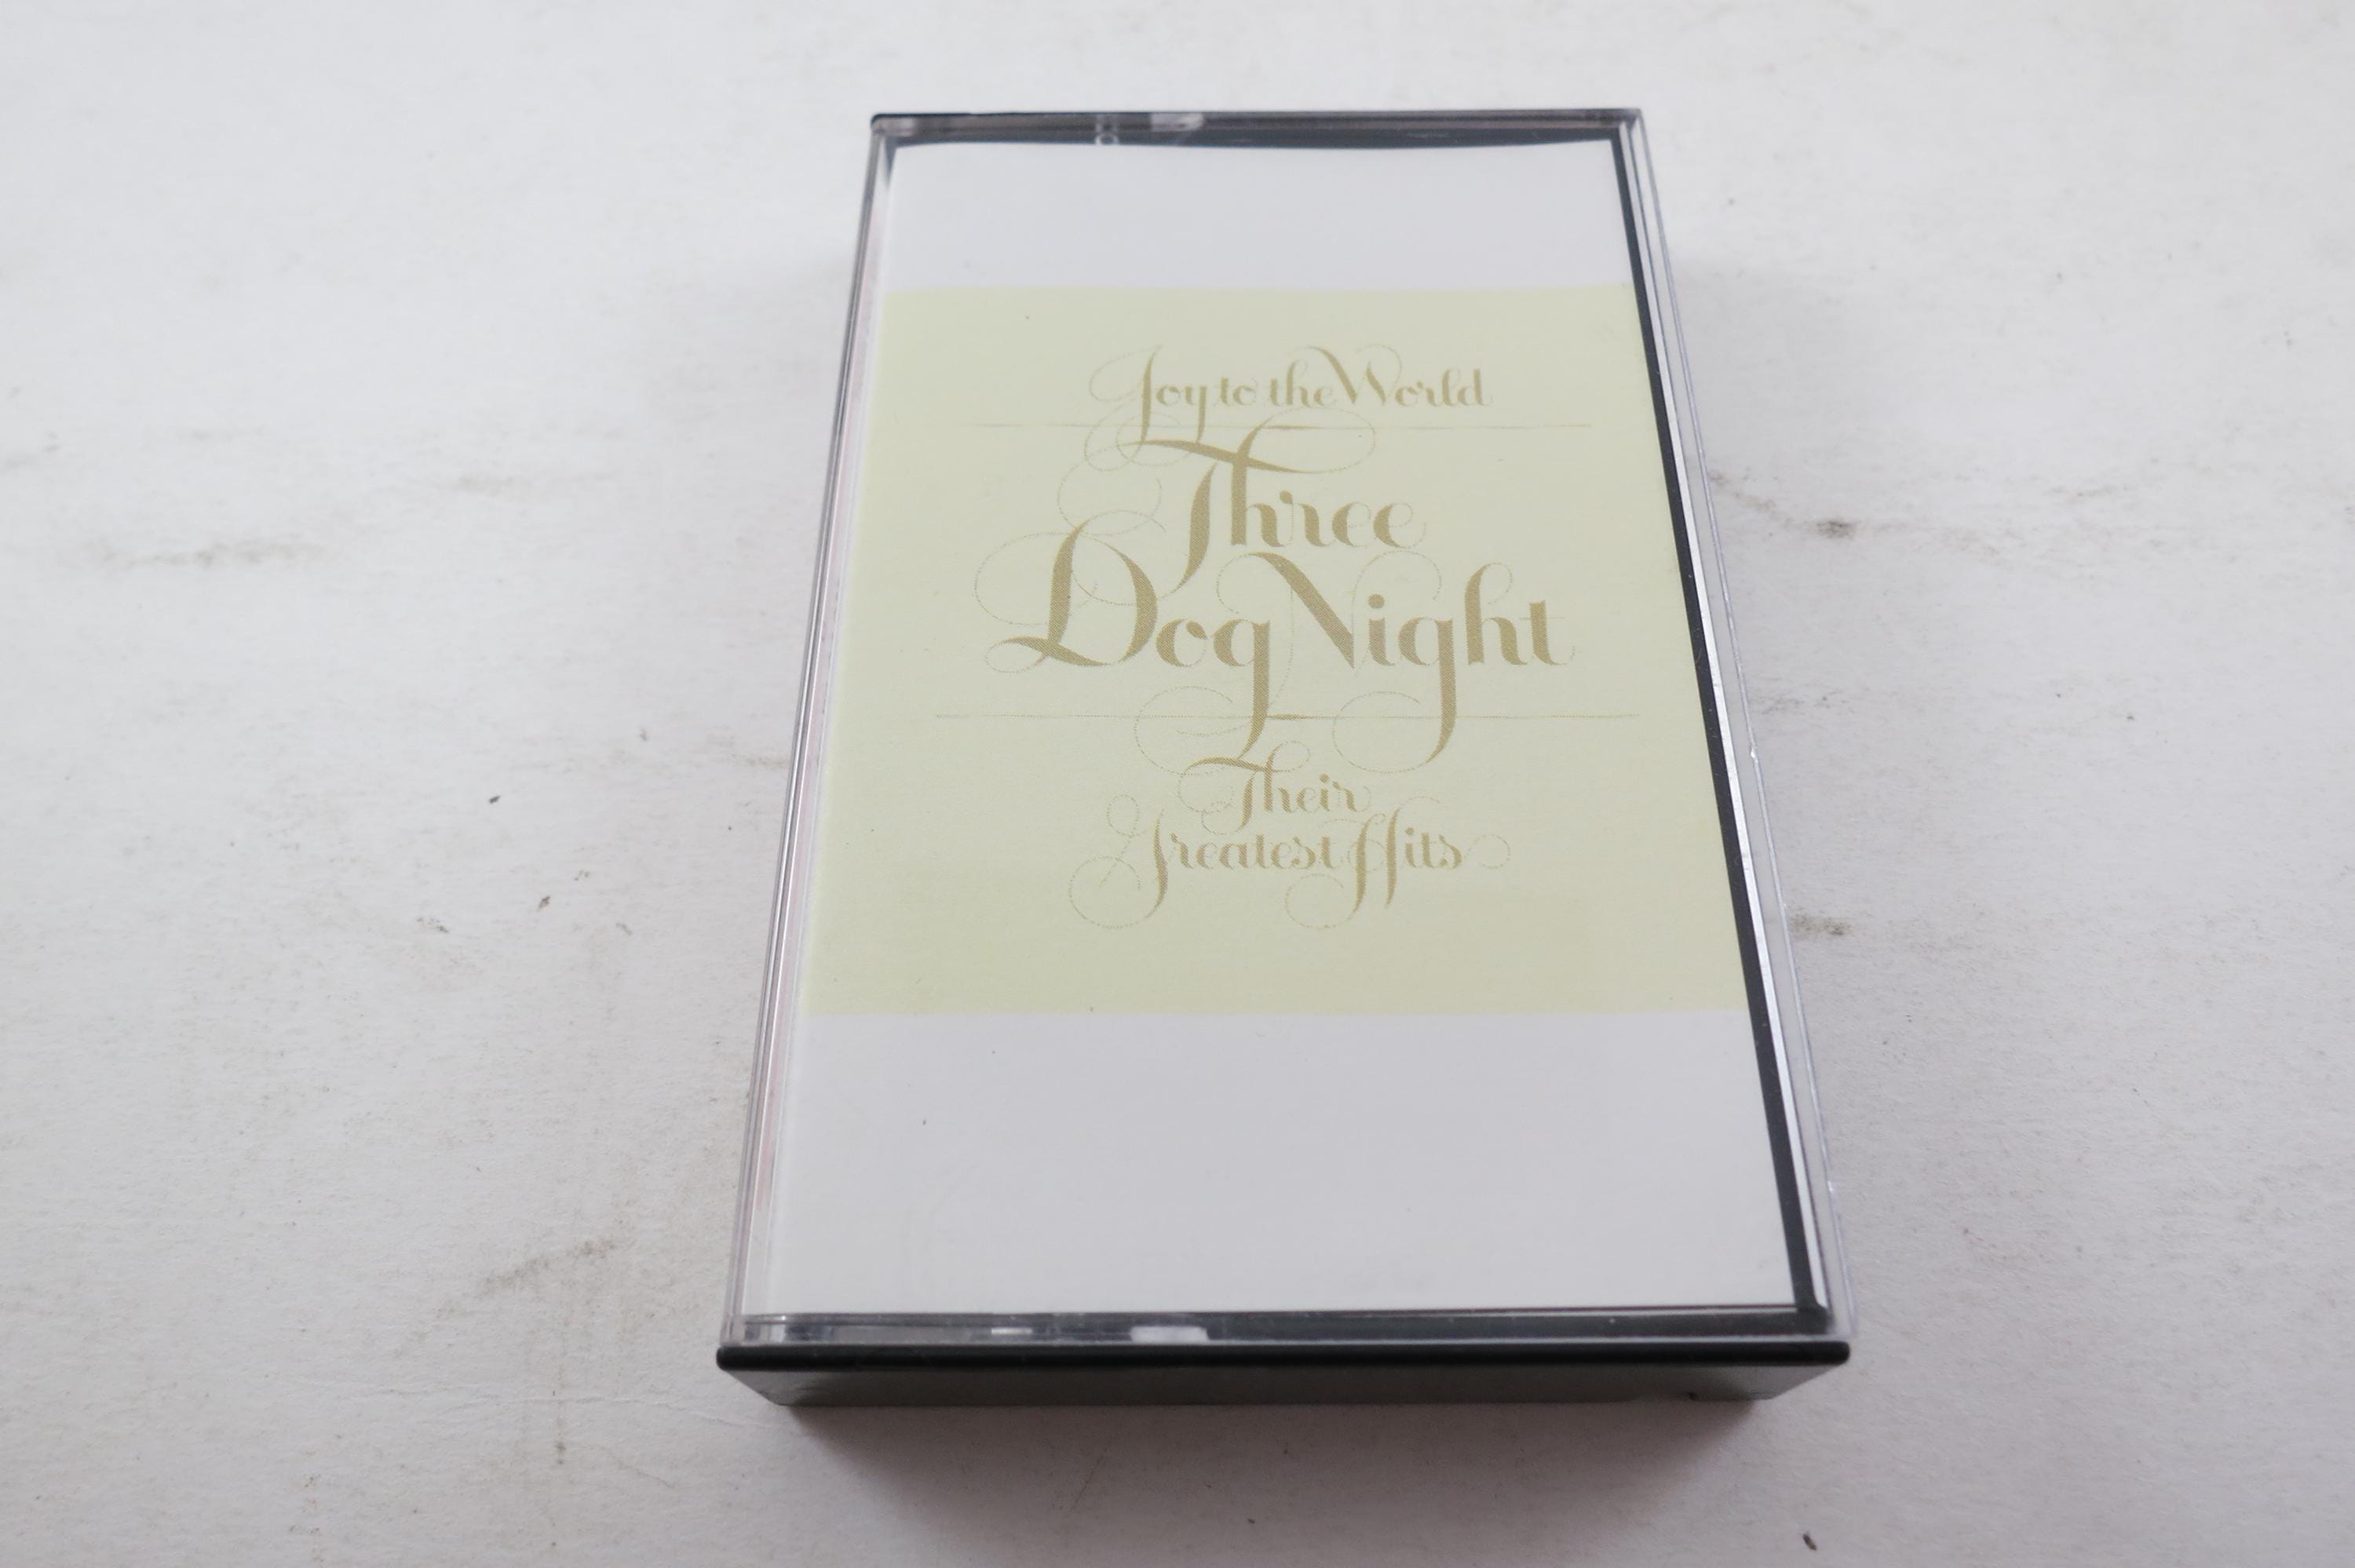 Joy to the World
Three
Dog Night
Their
Greatest Hits